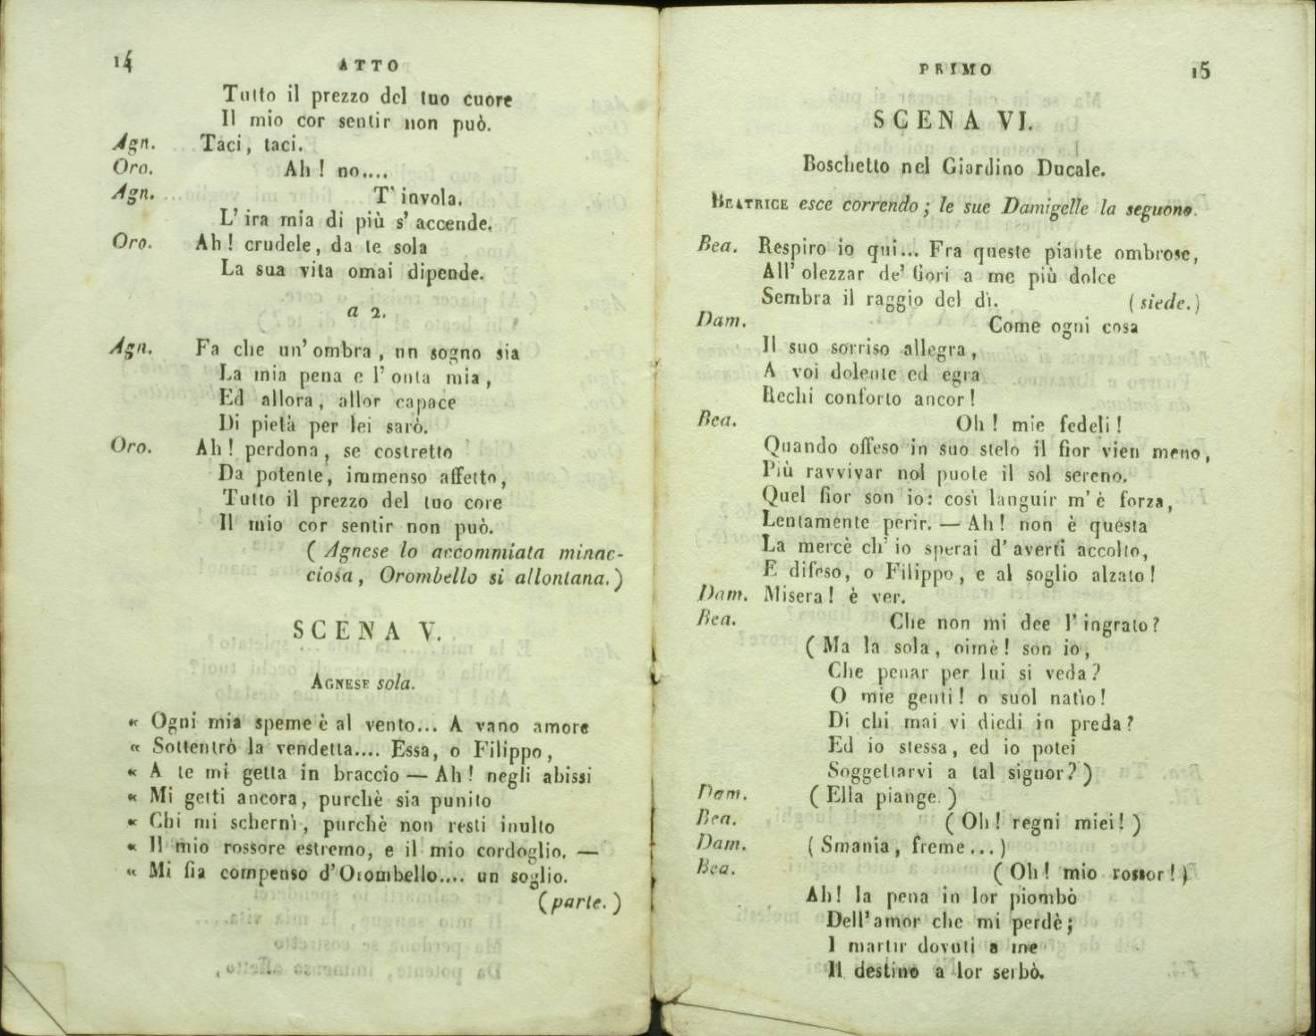 14
ATTO
Tutto il prezzo del tuo cuore
Il mio cor sentir non può.
Agn. Taci, taci.
Oro. Ah! no....
Agn. T'invola.
L'ira mia di più s'accende.
Oro. Ah! crudele, da te sola
La sua vita omai dipende.
a 2.
Agn. Fa che un'ombra, un sogno sia
La mia pena e l'onta mia,
Ed allora, allor capace
Di pietà per lei sarò.
Oro. Ah! perdona, se costretto
Da potente, immenso affetto,
Tutto il prezzo del tuo core
Il mio cor sentir non può.
(Agnese lo accommiata minac-
ciosa, Orombello si allontana.)
SCENA V.
AGNESE sola.
« Ogni mia speme è al vento... A vano amore
« Sottentrò la vendetta.... Essa, o Filippo,
« A te mi getta in braccio — Ah! negli abissi
« Mi getti ancora, purchè sia punito
« Chi mi schernì, purchè non resti inulto
« Il mio rossore estremo, e il mio cordoglio. —
« Mi fia compenso d'Orombello.... un soglio.
(parte.)
PRIMO
15
SCENA VI.
Boschetto nel Giardino Ducale.
BEATRICE esce correndo; le sue Damigelle la seguono.
Bea. Respiro io qui... Fra queste piante ombrose,
All'olezzar de' fiori a me più dolce
Sembra il raggio del dì. (siede.)
Dam. Come ogni cosa
Il suo sorriso allegra,
A voi dolente ed egra
Rechi conforto ancor!
Bea. Oh! mie fedeli!
Quando offeso in suo stelo il fior vien meno,
Più ravvivar nol puote il sol sereno.
Quel fior son io: così languir m'è forza,
Lentamente perir. — Ah! non è questa
La mercè ch'io sperai d'averti accolto,
E difeso, o Filippo, e al soglio alzato!
Dam. Misera! è ver.
Bea. Che non mi dee l'ingrato?
(Ma la sola, oimè! son io,
Che penar per lui si veda?
O mie genti! o suol natìo!
Di chi mai vi diedi in preda?
Ed io stessa, ed io potei
Soggettarvi a tal signor?)
Dam. (Ella piange.)
Bea. (Oh! regni miei!)
Dam. (Smania, freme...)
Bea. (Oh! mio rossor!)
Ah! la pena in lor piombò
Dell'amor che mi perdè;
I martir dovuti a me
Il destino a lor serbò.